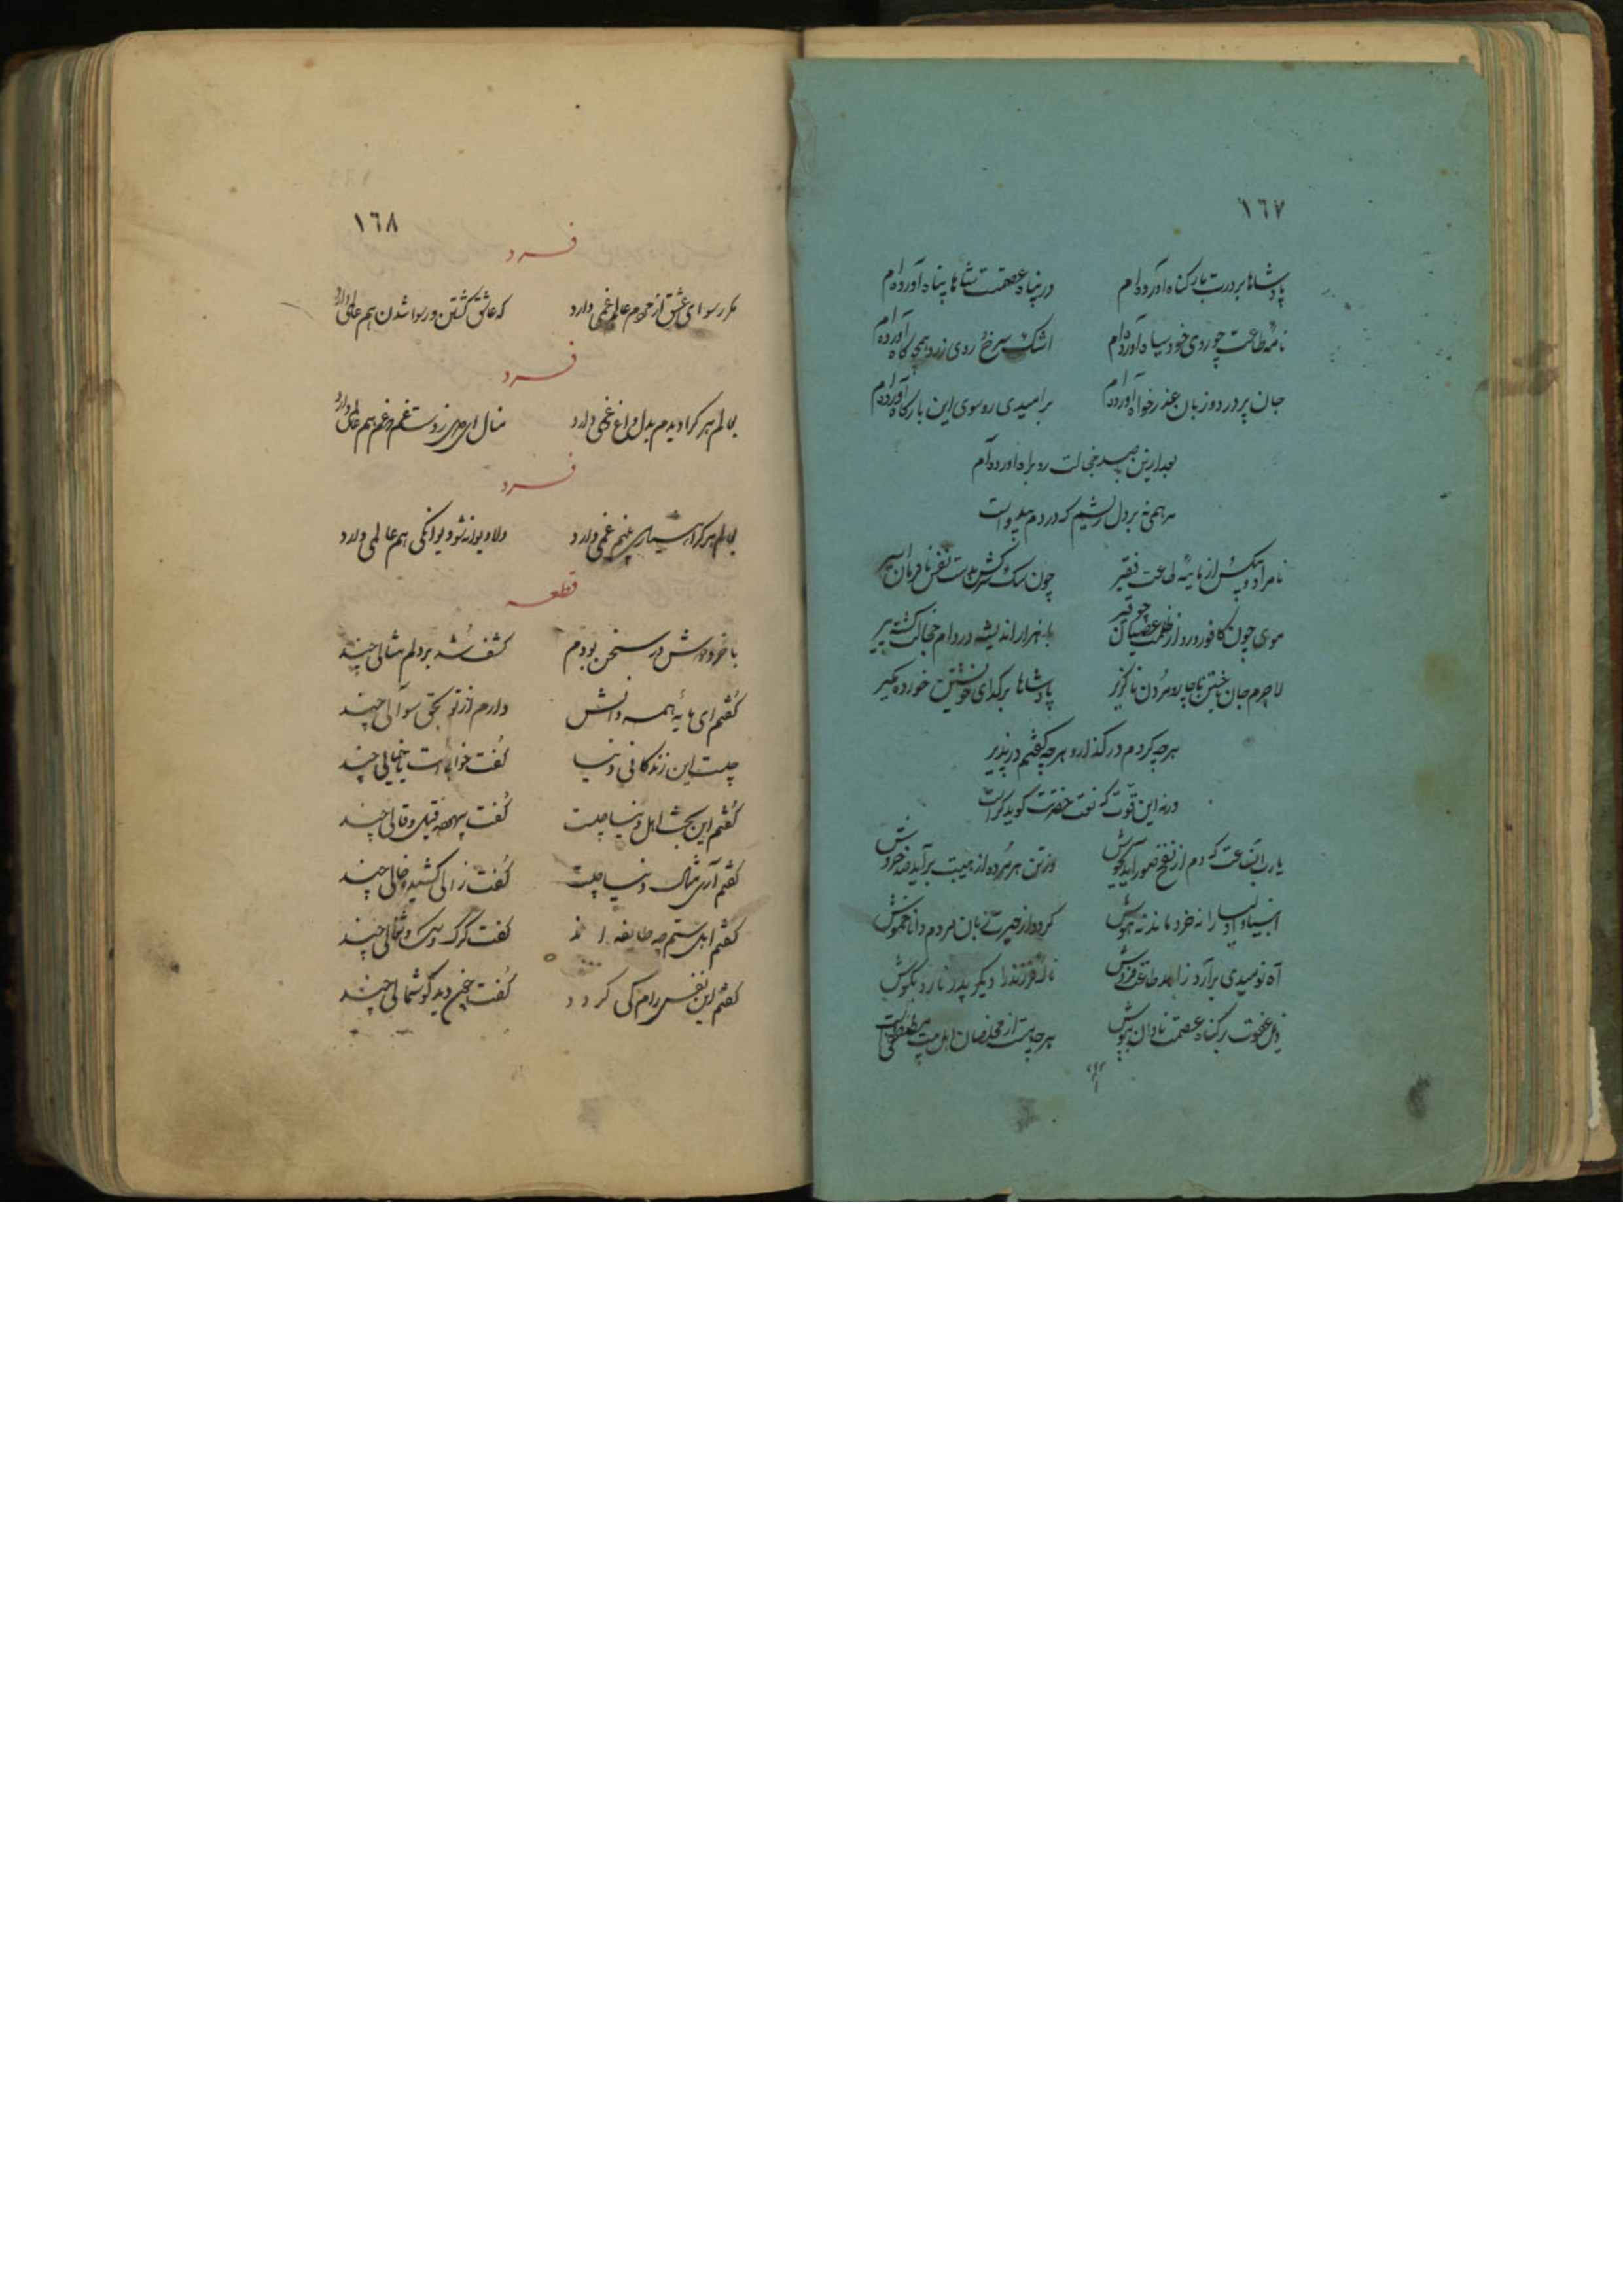 ١٦٧
پادشاها بر درت بار گناه آورده‌ام در پناه عصمتت شاها پناه آورده‌ام
نامهٔ طاعت چو روی خود سیاه آورده‌ام اشک سرخ روی زرد همچو کاه آورده‌ام
جان پر درد و زبان عذر خواه آورده‌ام بر امیدی رو سوی این بارگاه آورده‌ام
بعد ازین با صد خجالت رو براه آورده‌ام
مرهمی نه بر دل ریشم که دردم بیدواست
نامراد و بیکس از مایهٔ طاعت فقیر چون سگ سرکش بدست نفس نافرمان اسیر
موی چون کافور و رو از ظلمت عصیان چو قیر با هزار اندیشه در دام خجالت گشته پیر
لاجرم جان باختن ناچار و مردن ناگزیر پادشاها بر گدای خویشتن خورده مگیر
هر چه کردم در گذار و هر چه گفتم در پذیر
ورنه این قوت که نعت حضرتت گوید کراست
یا رب آنساعت که دم از نفخ صور آید بجوش وز تن هر مرده از هیبت برآید صد خروش
انبیا و اولیا را نه خرد ماند نه هوش گردد از حیرت زبان مردم دانا خموش
آه نومیدی برآرد زاهد طاعت فروش ناله فرزند را دیگر پدر نارد بگوش
ذیل عفوت بر گناه عصمت نادان بپوش هر چه هست از مخلصان اهل بیت مصطفی است
١٦٨
فرد
مکرر رسوای عشق از مردم عالم غمی دارد که عاشق گشتن و رسوا شدن هم عالمی دارد
فرد
بعالم هر کرا دیدم بدل داغ غمی دارد منال ای دل ز دست غم که غم هم عالمی دارد
فرد
بعالم هر کرا هشیار بینم غمی دارد دلا دیوانه شو دیوانگی هم عالمی دارد
قطعه
با خرد دوش در سخن بودم کشف شد بر دلم مثالی چند
گفتم ای مایهٔ همه دانش دارم از تو بحق سوالی چند
چیست این زندگانی دنیا گفت خوابیست یا خیالی چند
گفتم این بحث اهل دنیا چیست گفت بیهوده قیل و قالی چند
گفتم آری مثال دنیا چیست گفت زالی کشیده خالی چند
گفتم اهل ستم چه طایفه اند گفت گرگ و سگ و شغالی چند
گفتم این نفس رام کی گردد گفت چون دید گوشمالی چند